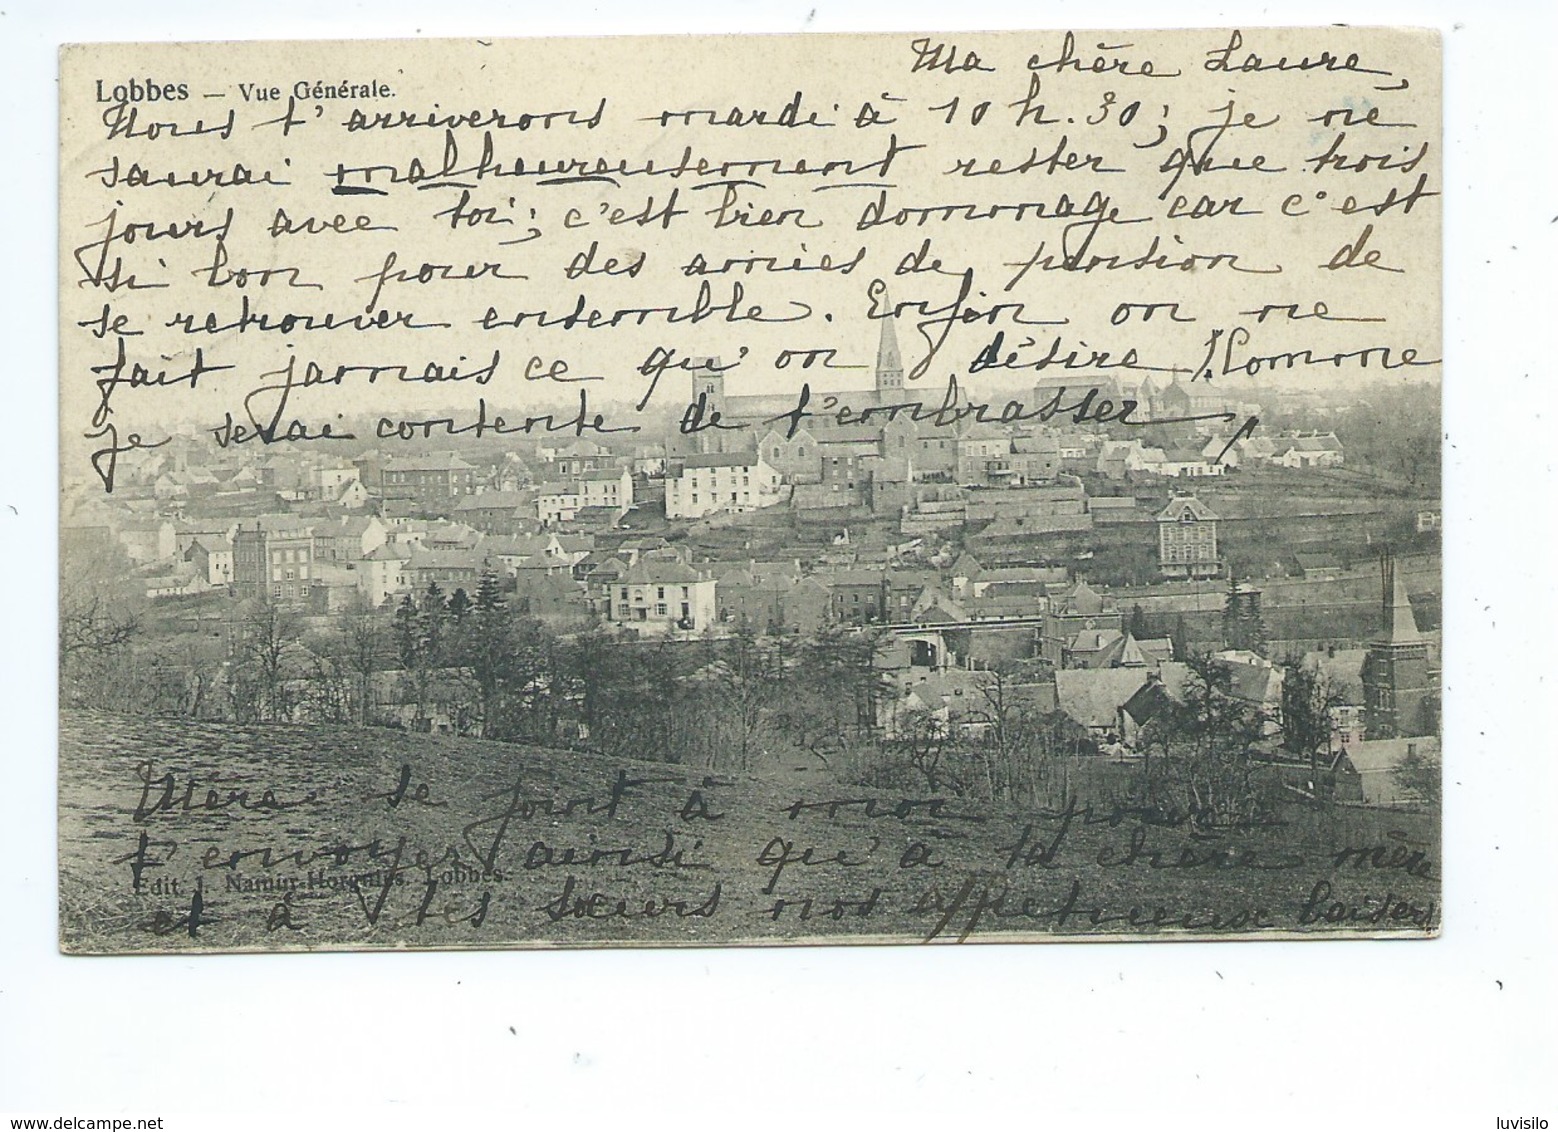 Ma chère Laure,
Lobbes — Vue Générale.
Nous t'arriverons mardi à 10 h. 30; je ne
saurai malheureusement rester que trois
jours avec toi; c'est bien dommage car c'est
si bon pour des amies de pension de
se retrouver ensemble. Enfin on ne
fait jamais ce qu'on désire! Comme
je serai contente de t'embrasser,
Mère se joint à moi pour
t'envoyer ainsi qu'à ta chère mère
Edit. J. Namur-Horgnies. Lobbes
et à tes sœurs nos affectueux baisers
www.delcampe.net
luvisilo